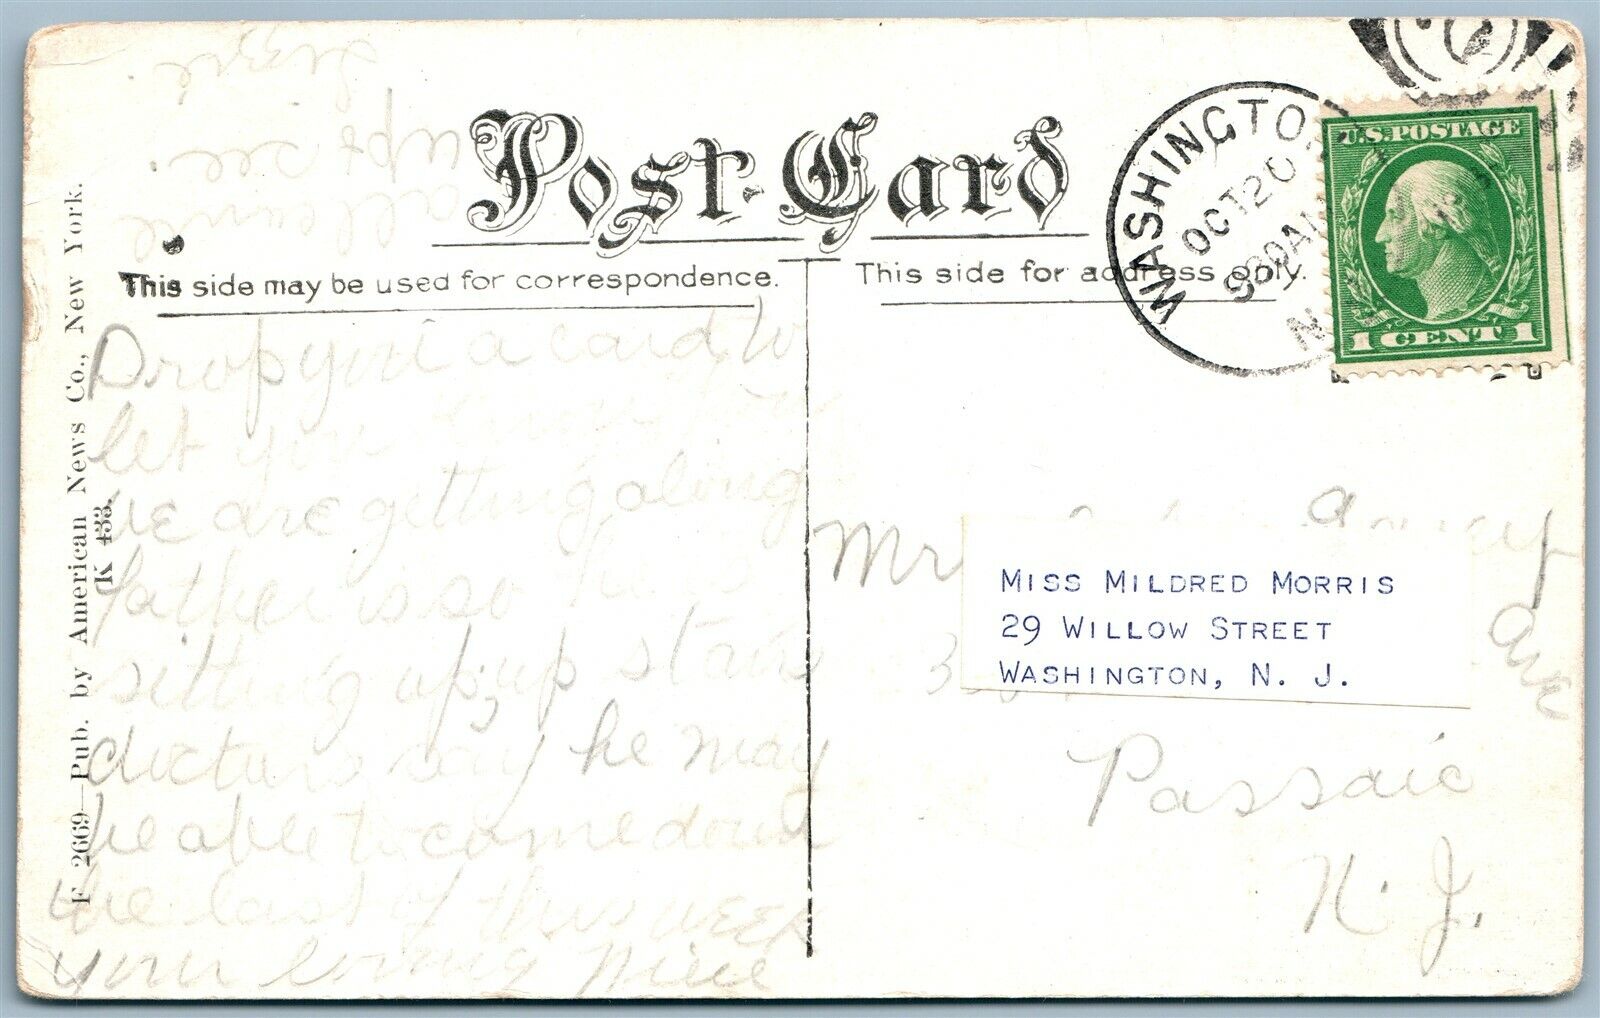 Post Card
This side may be used for correspondence.
This side for address only.
WASHINGTO
OCT 20
930AM
N.
U.S. POSTAGE
1 CENT 1
F 2669—Pub. by American News Co., New York.
K 433.
Drop you a card to
let you know how
we are getting along
father is so he is
sitting up, up stairs
doctors say he may
be able to come down
the last of this week
your loving niece
Lizzie
all
ups
Mr
Ave
3
Passaic
N. J.
MISS MILDRED MORRIS
29 WILLOW STREET
WASHINGTON, N. J.